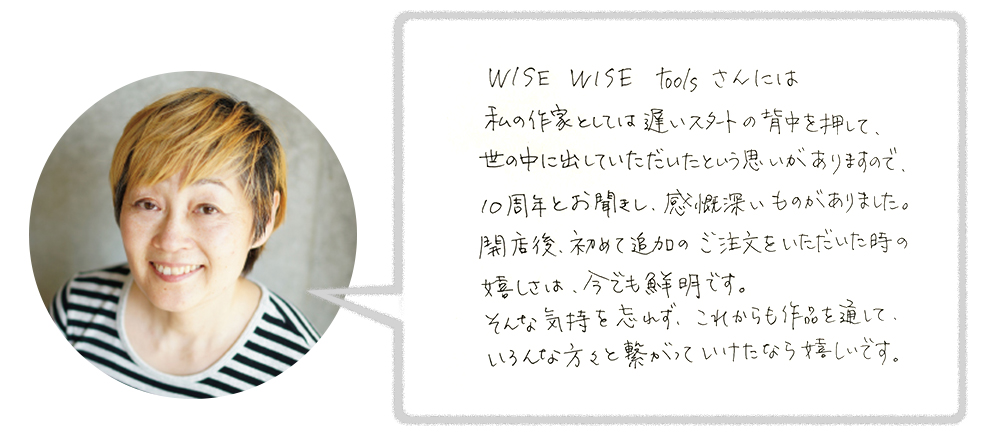 WISE WISE tools さんには
私の作家としては遅いスタートの背中を押して、
世の中に出していただいたという思いがありますので、
10周年とお聞きし、感慨深いものがありました。
開店後、初めて追加のご注文をいただいた時の
嬉しさは、今でも鮮明です。
そんな気持を忘れず、これからも作品を通して、
いろんな方々と繋がっていけたなら嬉しいです。